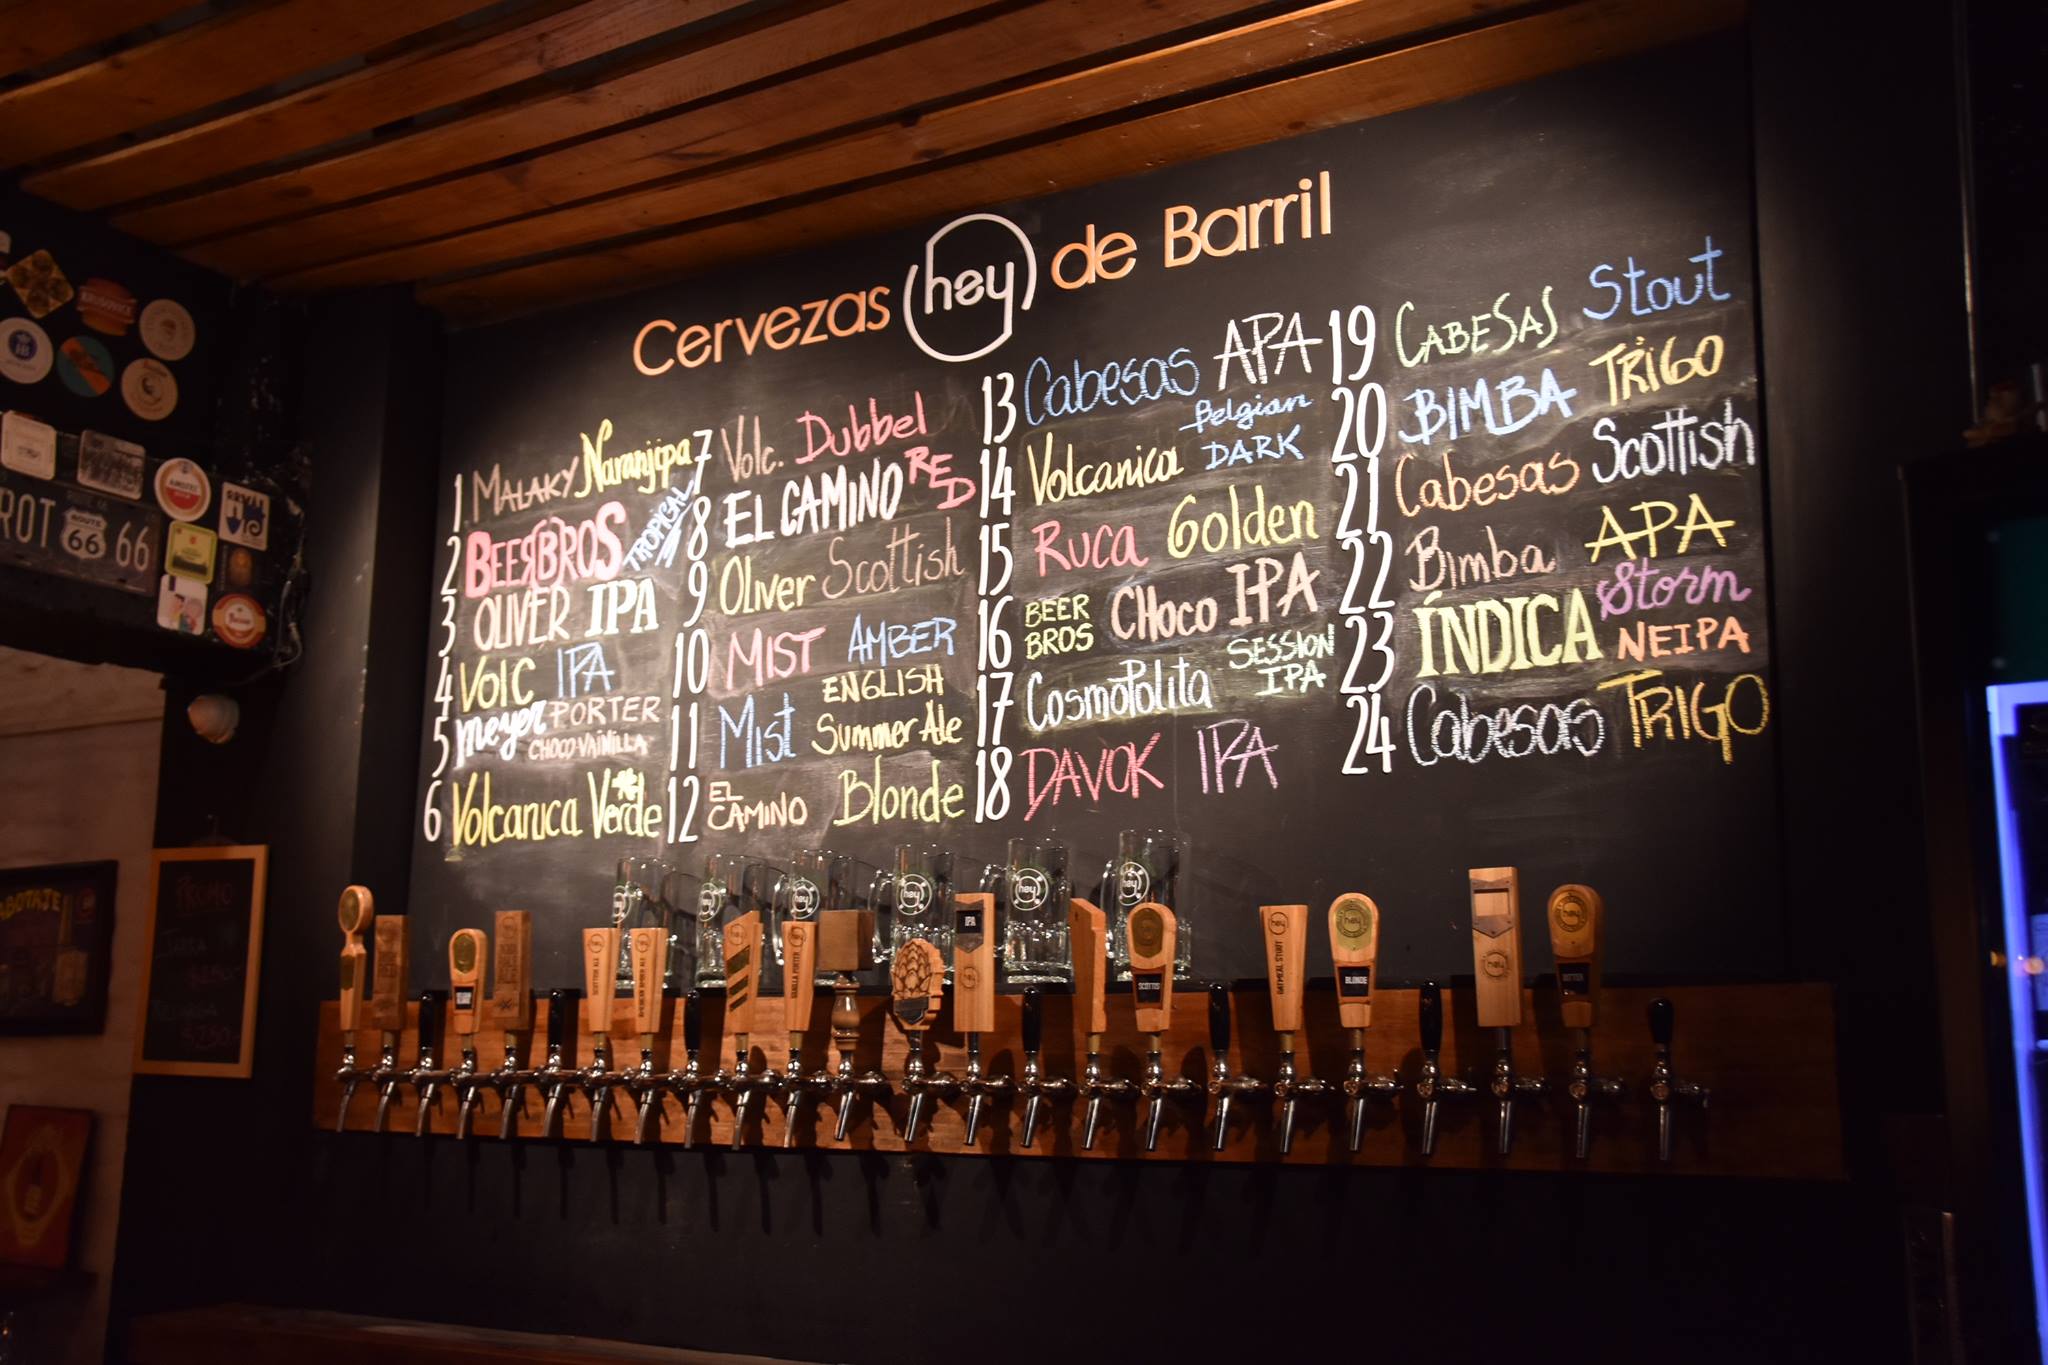 Cervezas hey de Barril
1 MALAKY Naranjipa
2 BEERBROS TROPICAL
3 OLIVER IPA
4 VOLC IPA
5 meyer PORTER
CHOCO-VAINILLA
6 Volcanica Verde
7 Volc. Dubbel
8 EL CAMINO RED
9 Oliver Scottish
10 MIST AMBER
11 Mist ENGLISH
Summer Ale
12 EL CAMINO Blonde
13 Cabesas APA
14 Volcanica Belgian
DARK
15 Ruca Golden
16 BEER BROS CHOCO IPA
17 Cosmopolita SESSION
IPA
18 DAVOK IPA
19 CABESAS Stout
20 BIMBA TRIGO
21 Cabesas Scottish
22 Bimba APA
23 ÍNDICA Storm
NEIPA
24 Cabesas TRIGO
ROUTE
66
66
PROMO
hey
hey
hey
hey
hey
hey
SCOTTISH ALE
VANILLA PORTER
IPA
SCOTTISH
OATMEAL STOUT
hey
BLONDE
hey